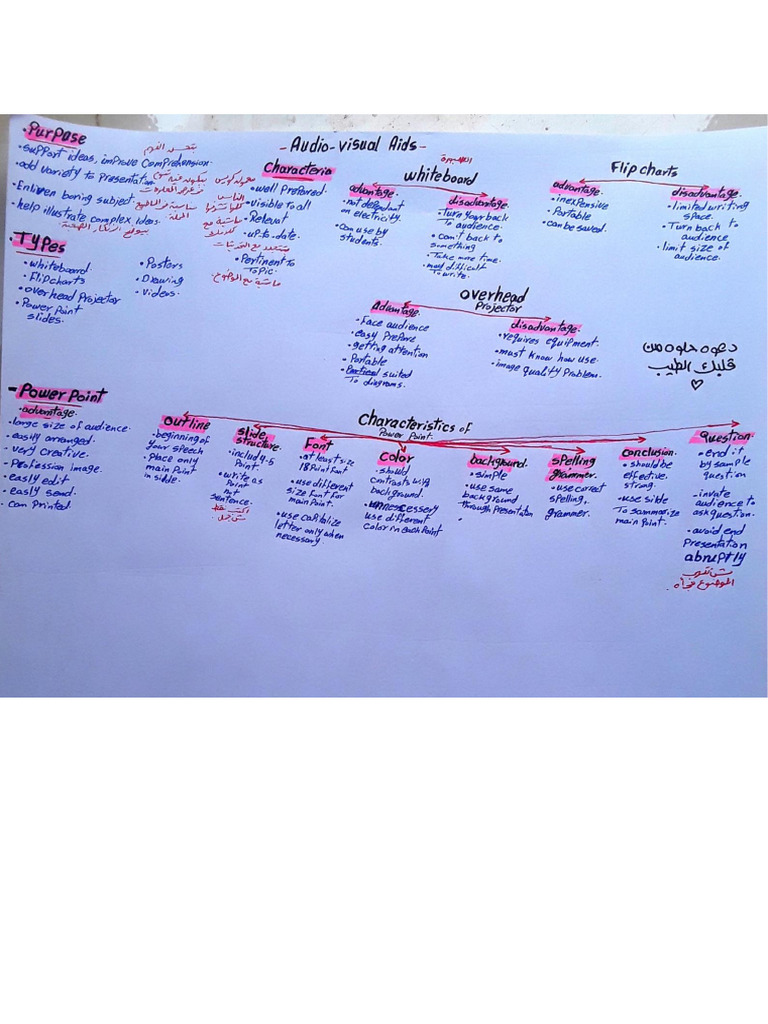 - Audio-visual Aids -
• Purpose
• support ideas, improve Comprehension.
• add variety to Presentation
• Enliven boring subject
• help illustrate complex ideas.
• Types
• whiteboard
• Flipcharts
• overhead Projector
• Power Point
slides.
• Posters
• Drawing
• videos.
Characteria
• well Prepared.
• visible To all
• Relevat
• up-to-date.
• Pertinent To
Topic.
السبورة
whiteboard
advantage.
• not dependant
on electricity.
• Can use by
students.
disadvantage.
• Turn your back
To audience.
• can't back to
something
• Take more time.
• difficult
To write.
Flip charts
advantage.
• inexpensive
• Portable
• can be saved.
disadvantage.
• limited writing
space.
• Turn back to
audience
• limit size of
audience.
overhead
Projector
Advantage.
• Face audience
• easy Prepare
• getting attention
• Portable
• suited
To diagrams.
disadvantage.
• requires equipment.
• must know how use.
• image quality Problem.
دعوه حلوه من
قلبك الطيب
- Power Point
• advantage.
• large size of audience.
• easily arranged.
• very creative.
• Profession image.
• easily edit
• easily send.
• can Printed.
Characteristics of
Power Point.
outline
• beginning of
your speech
• Place only
main Point
in slide.
slide
structure.
• includ 4-5
Point.
• write as
Point
not
sentence.
Font
• at least size
18 Point font
• use different
size font for
main Point.
• use capitalize
letter only when
necessary.
Color
• should
contrasts with
background.
• unnecessery
use different
color in each Point
background.
• simple
• use same
background
through Presentation
spelling
grammer.
• use correct
spelling,
grammer.
conclusion.
• should be
effective.
strong.
• use slide
To sammarize
main Point.
question.
• end it
by sample
question
• invate
audience to
ask question.
• avoid end
Presentation
abruptly
الموضوع فجأه